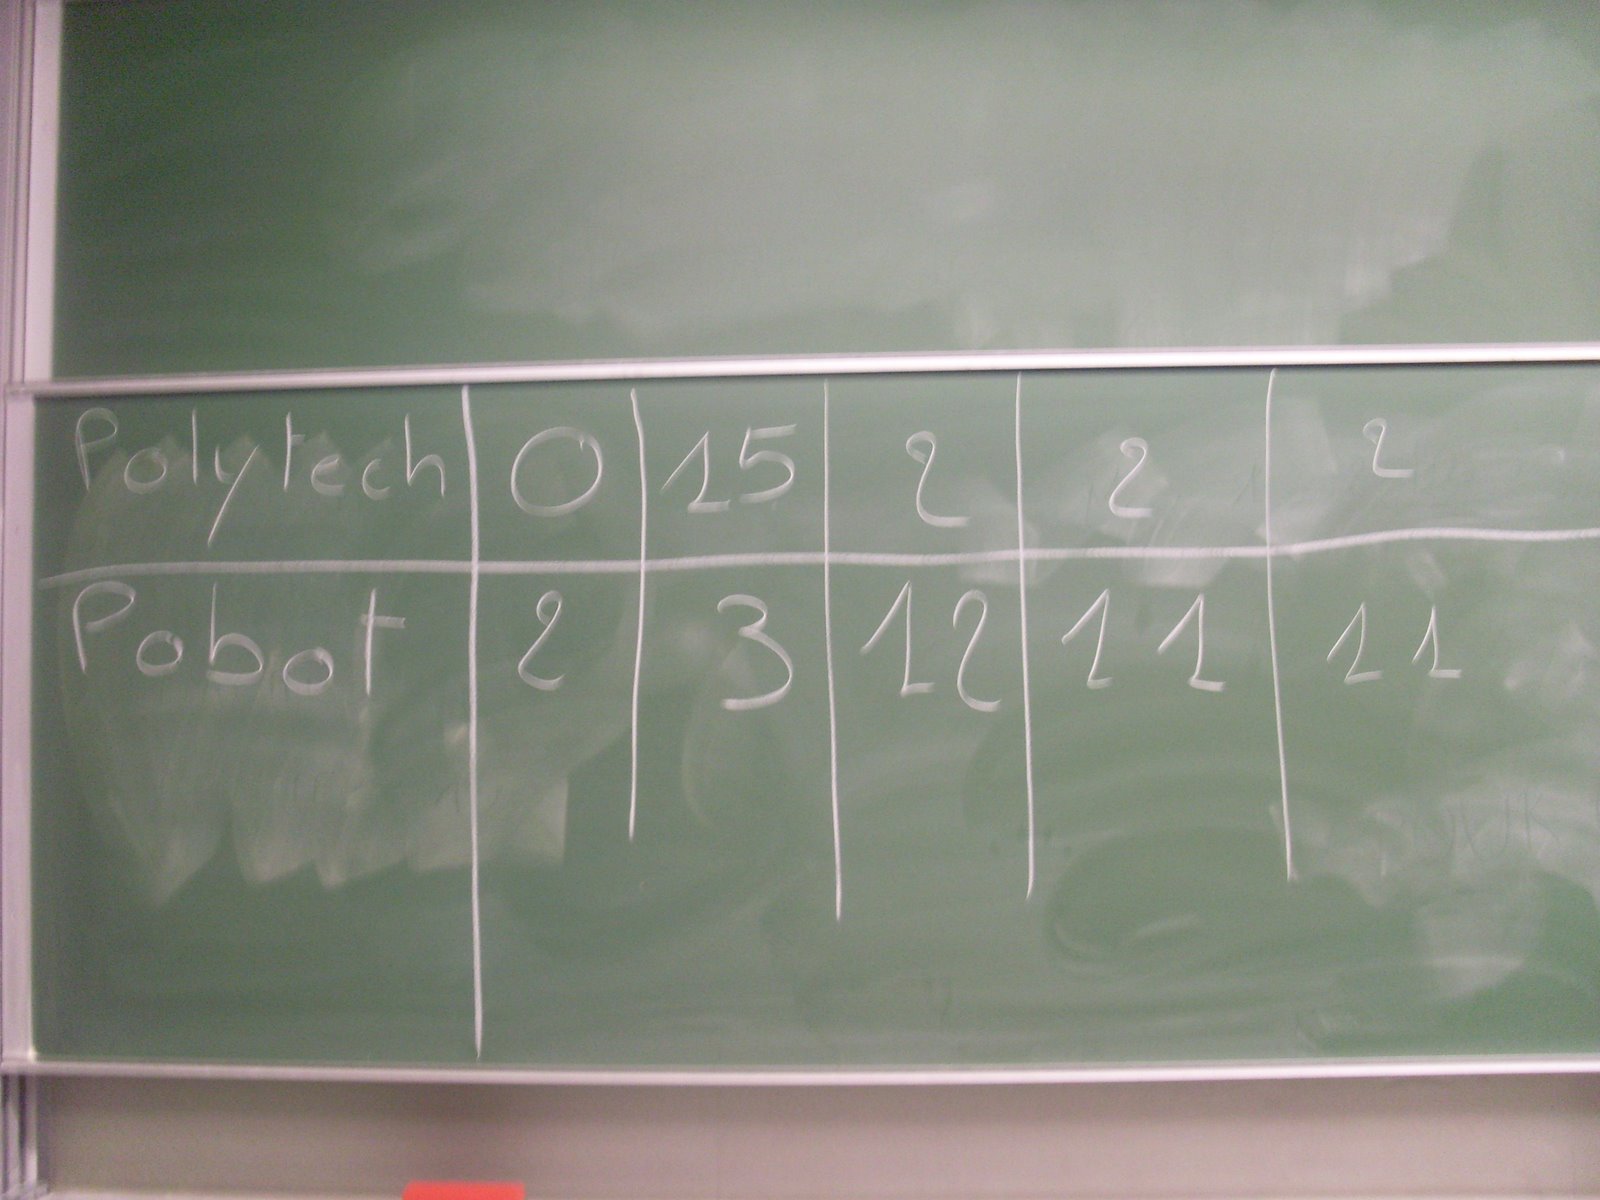 Polytech 0 15 2 2 2
Pobot 2 3 12 11 11